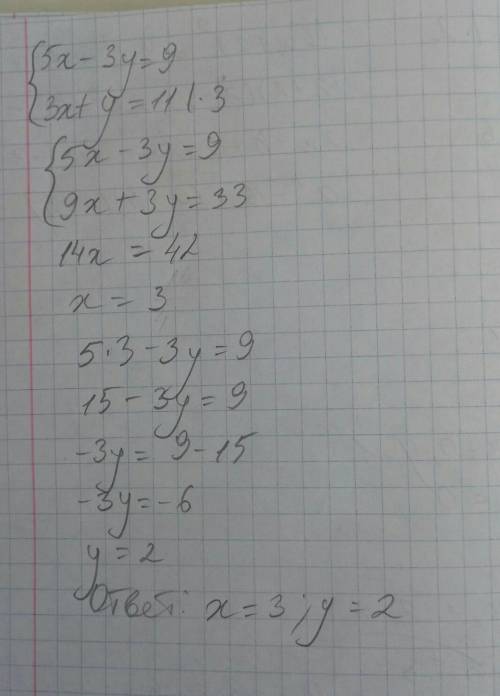 5x - 3y = 9
3x + y = 11 | · 3
5x - 3y = 9
9x + 3y = 33
14x = 42
x = 3
5 · 3 - 3y = 9
15 - 3y = 9
-3y = 9 - 15
-3y = -6
y = 2
Ответ: x = 3 ; y = 2